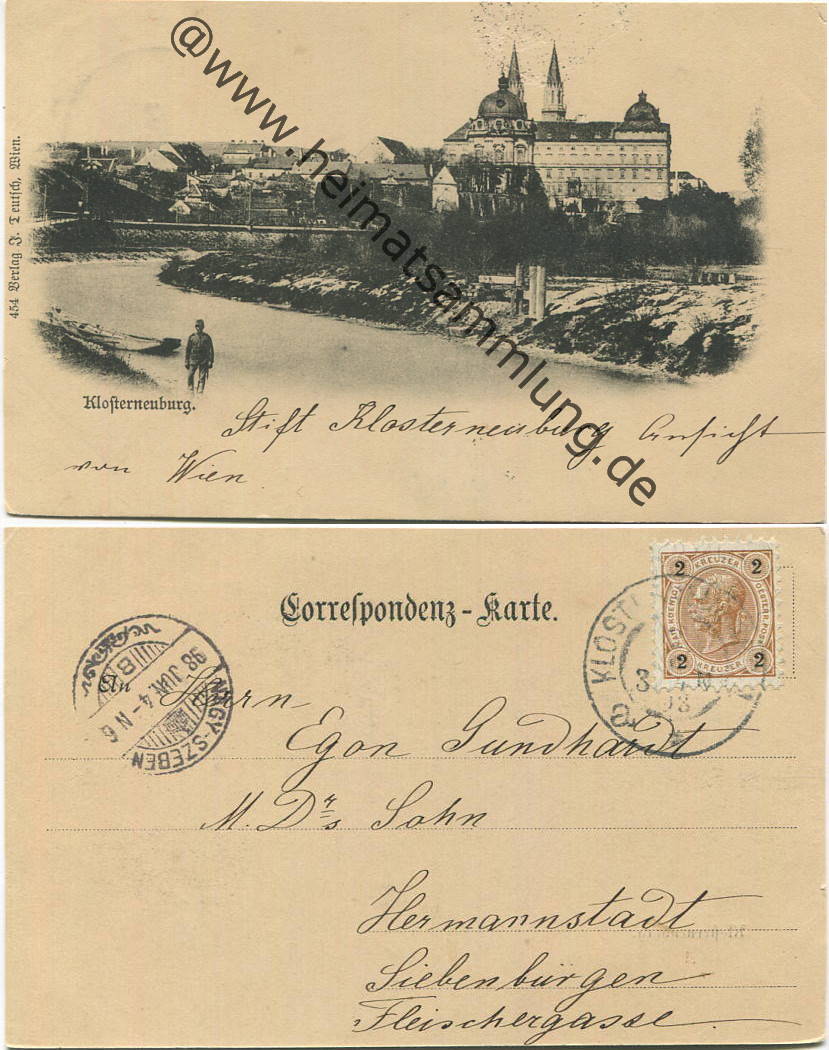 @www.heimatsammlung.de
454 Verlag J. Teutsch, Wien.
Klosterneuburg.
Stift Klosterneuburg Ansicht
von Wien.
Correspondenz-Karte.
2 KREUZER 2
KAIS. KOENIGL.
OESTERR. POST
2 KREUZER 2
KLOST
98 JUN. 4 - N 6
NAGY-SZEBEN
An Herrn
Egon Gundhardt
M. Drs Sohn
Hermannstadt
Siebenbürgen
Fleischergasse.